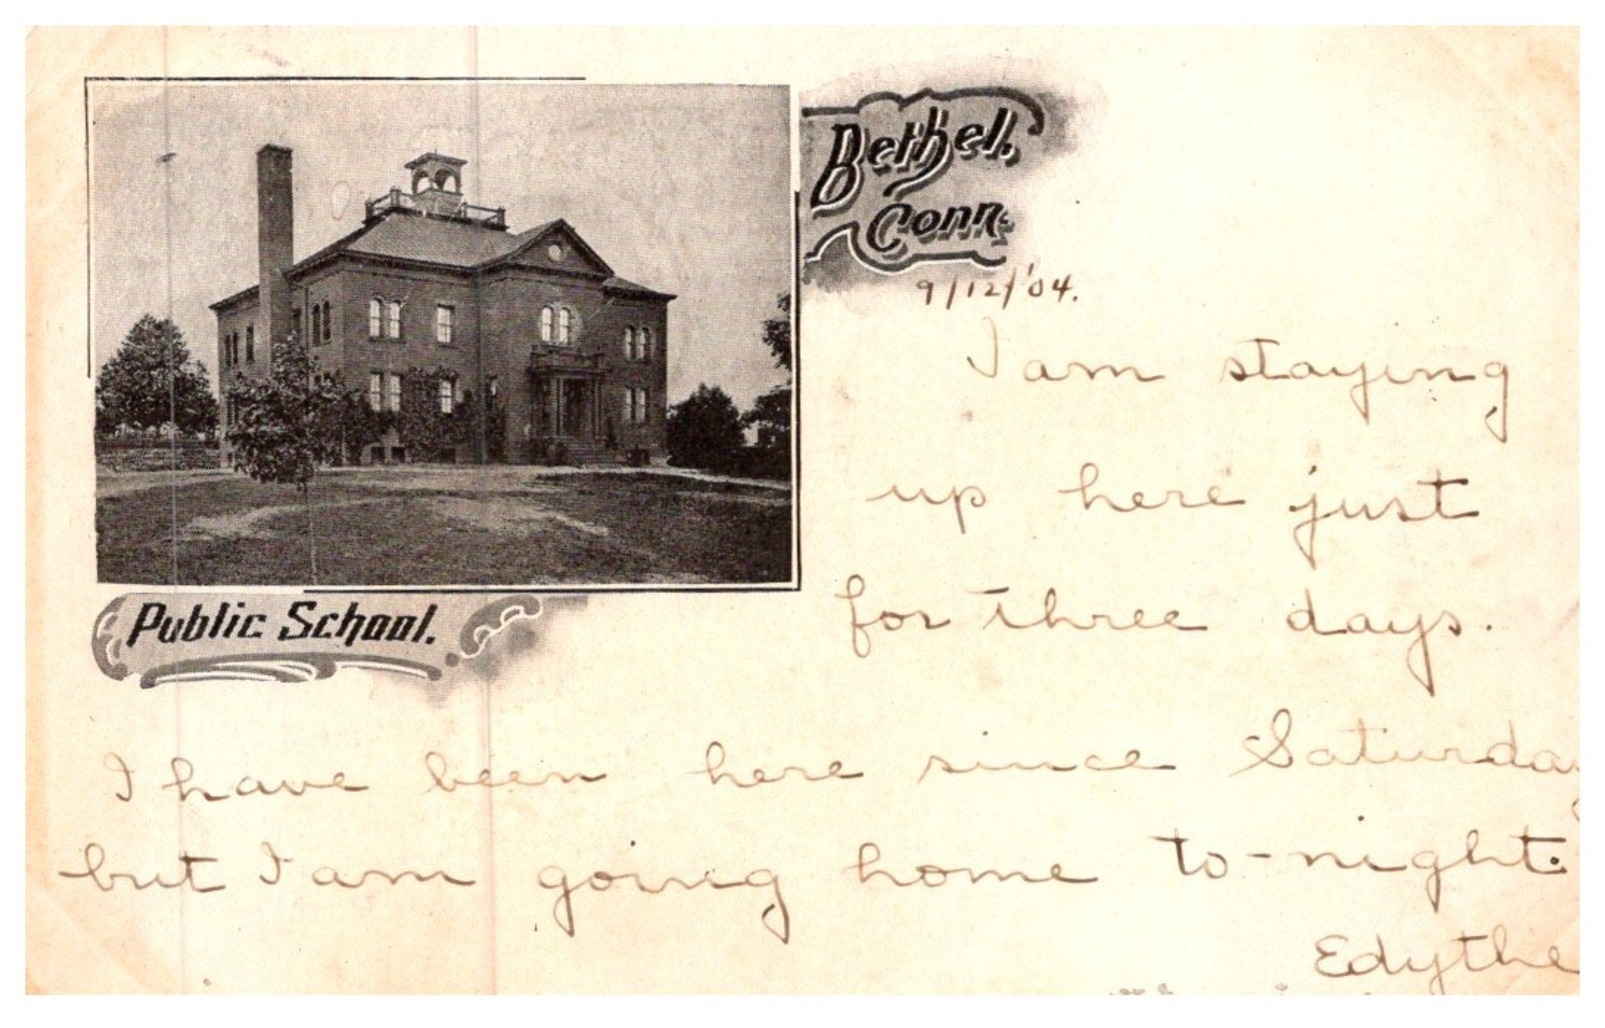 Bethel,
Conn.
9/12/'04.
I am staying
up here just
for three days.
Public School.
I have been here since Saturday
but I am going home to-night.
Edythe